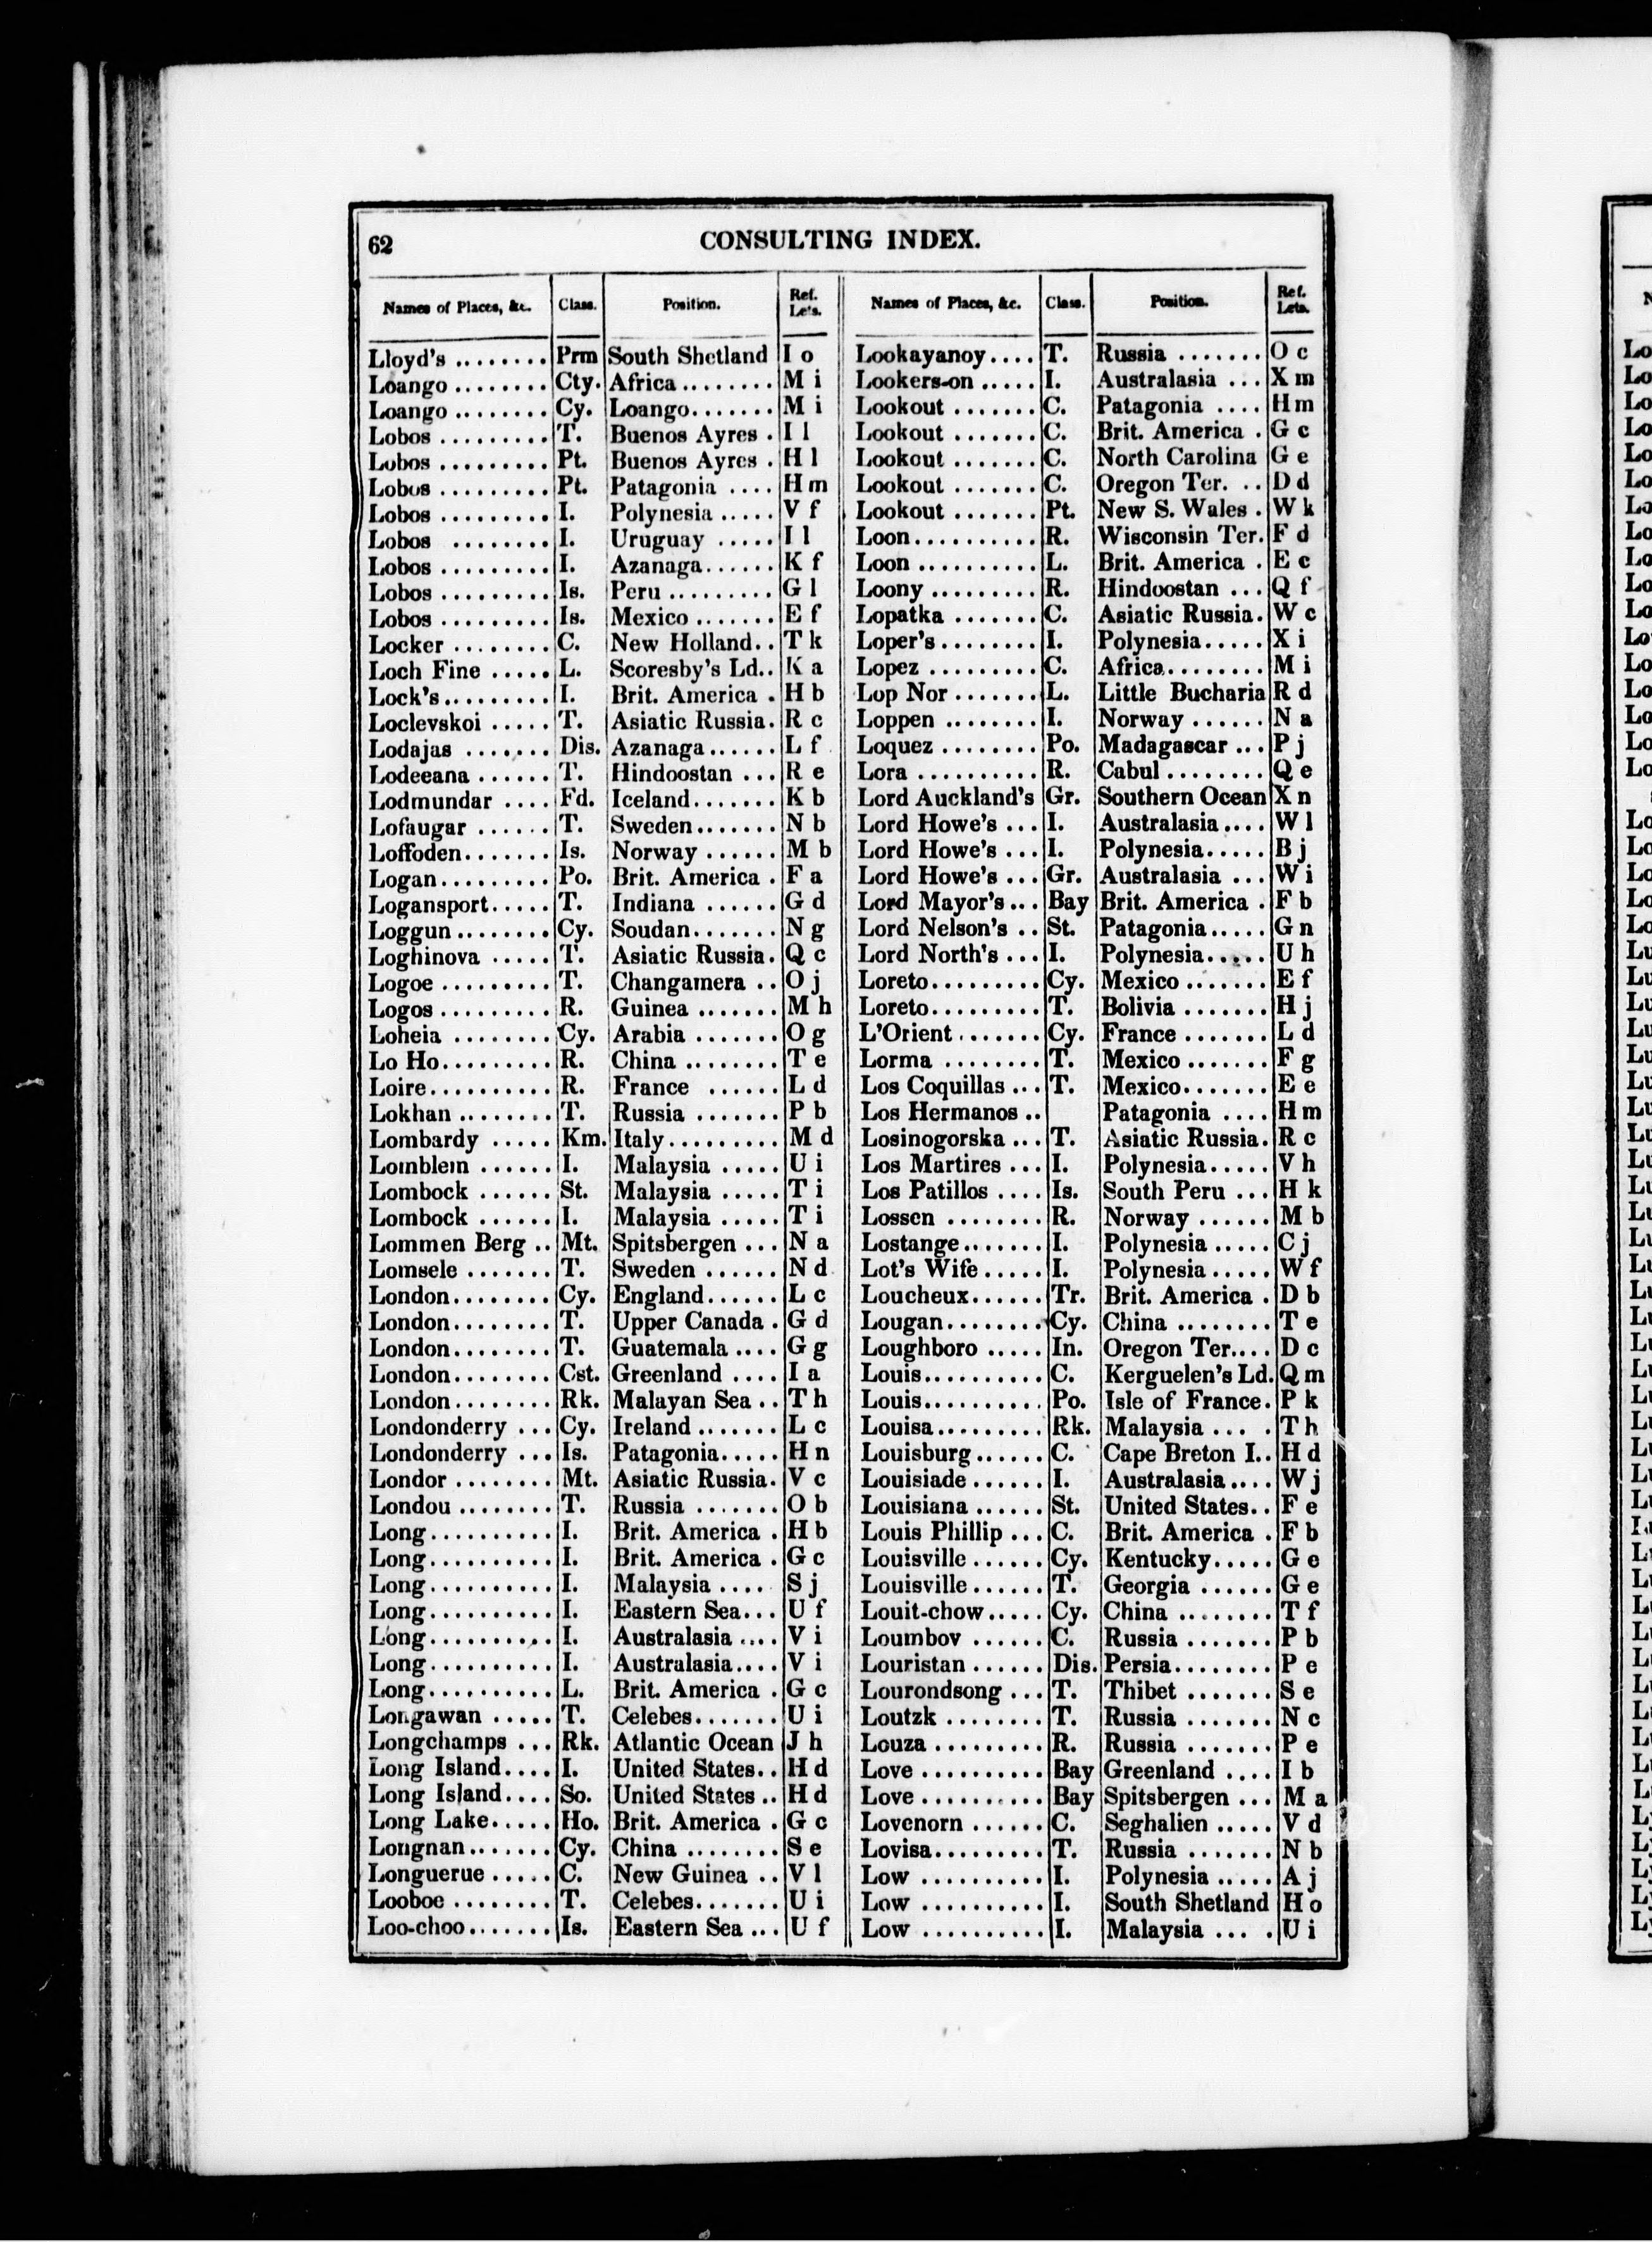 62
CONSULTING INDEX.
Names of Places, &c. Class. Position. Ref. Lets.
Lloyd's ........ Prm South Shetland I o
Loango ........ Cty. Africa ........ M i
Loango ........ Cy. Loango....... M i
Lobos ......... T. Buenos Ayres . I l
Lobos ......... Pt. Buenos Ayres . H l
Lobos ......... Pt. Patagonia .... H m
Lobos ......... I. Polynesia ..... V f
Lobos ........ I. Uruguay ..... I l
Lobos ......... I. Azanaga...... K f
Lobos ......... Is. Peru ......... G l
Lobos ......... Is. Mexico ....... E f
Locker ........ C. New Holland.. T k
Loch Fine ..... L. Scoresby's Ld.. K a
Lock's......... I. Brit. America . H b
Loclevskoi ..... T. Asiatic Russia. R c
Lodajas ....... Dis. Azanaga...... L f
Lodeeana ...... T. Hindoostan ... R e
Lodmundar .... Fd. Iceland....... K b
Lofaugar ...... T. Sweden....... N b
Loffoden....... Is. Norway ...... M b
Logan......... Po. Brit. America . F a
Logansport..... T. Indiana ...... G d
Loggun ........ Cy. Soudan....... N g
Loghinova ..... T. Asiatic Russia. Q c
Logoe ......... T. Changamera .. O j
Logos ......... R. Guinea ....... M h
Loheia ........ Cy. Arabia ....... O g
Lo Ho......... R. China ........ T e
Loire.......... R. France ...... L d
Lokhan ........ T. Russia ....... P b
Lombardy ..... Km. Italy ......... M d
Lomblem ...... I. Malaysia ..... U i
Lombock ...... St. Malaysia ..... T i
Lombock ...... I. Malaysia ..... T i
Lommen Berg .. Mt. Spitsbergen ... N a
Lomsele ....... T. Sweden ...... N d
London........ Cy. England...... L c
London........ T. Upper Canada . G d
London........ T. Guatemala .... G g
London........ Cst. Greenland .... I a
London........ Rk. Malayan Sea .. T h
Londonderry ... Cy. Ireland ....... L c
Londonderry ... Is. Patagonia..... H n
Londor ........ Mt. Asiatic Russia. V c
Londou ........ T. Russia ....... O b
Long.......... I. Brit. America . H b
Long.......... I. Brit. America . G c
Long.......... I. Malaysia .... S j
Long.......... I. Eastern Sea... U f
Long.......... I. Australasia .... V i
Long.......... I. Australasia.... V i
Long.......... L. Brit. America . G c
Longawan ..... T. Celebes....... U i
Longchamps ... Rk. Atlantic Ocean J h
Long Island.... I. United States.. H d
Long Island.... So. United States .. H d
Long Lake..... Ho. Brit. America . G c
Longnan....... Cy. China ........ S e
Longuerue ..... C. New Guinea .. V l
Looboe ........ T. Celebes....... U i
Loo-choo....... Is. Eastern Sea ... U f
Names of Places, &c. Class. Position. Ref. Lets.
Lookayanoy.... T. Russia ....... O c
Lookers-on ..... I. Australasia ... X m
Lookout ....... C. Patagonia .... H m
Lookout ....... C. Brit. America . G c
Lookout ....... C. North Carolina G e
Lookout ....... C. Oregon Ter. .. D d
Lookout ....... Pt. New S. Wales . W k
Loon.......... R. Wisconsin Ter. F d
Loon .......... L. Brit. America . E c
Loony ......... R. Hindoostan ... Q f
Lopatka ....... C. Asiatic Russia. W c
Loper's........ I. Polynesia..... X i
Lopez ......... C. Africa........ M i
Lop Nor ....... L. Little Bucharia R d
Loppen ........ I. Norway ...... N a
Loquez ........ Po. Madagascar ... P j
Lora .......... R. Cabul ........ Q e
Lord Auckland's Gr. Southern Ocean X n
Lord Howe's ... I. Australasia.... W l
Lord Howe's ... I. Polynesia..... B j
Lord Howe's ... Gr. Australasia ... W i
Lord Mayor's... Bay Brit. America . F b
Lord Nelson's .. St. Patagonia..... G n
Lord North's ... I. Polynesia..... U h
Loreto......... Cy. Mexico ....... E f
Loreto......... T. Bolivia ....... H j
L'Orient ....... Cy. France ....... L d
Lorma ........ T. Mexico ....... F g
Los Coquillas ... T. Mexico....... E e
Los Hermanos .. Patagonia .... H m
Losinogorska ... T. Asiatic Russia. R c
Los Martires ... I. Polynesia..... V h
Los Patillos .... Is. South Peru ... H k
Lossen ........ R. Norway ...... M b
Lostange....... I. Polynesia ..... C j
Lot's Wife..... I. Polynesia ..... W f
Loucheux...... Tr. Brit. America . D b
Lougan........ Cy. China ........ T e
Loughboro ..... In. Oregon Ter.... D c
Louis.......... C. Kerguelen's Ld. Q m
Louis.......... Po. Isle of France. P k
Louisa......... Rk. Malaysia ... . T h
Louisburg...... C. Cape Breton I.. H d
Louisiade ...... I. Australasia.... W j
Louisiana ...... St. United States.. F e
Louis Phillip ... C. Brit. America . F b
Louisville ...... Cy. Kentucky..... G e
Louisville...... T. Georgia ...... G e
Louit-chow..... Cy. China ........ T f
Loumbov ...... C. Russia ....... P b
Louristan ...... Dis. Persia........ P e
Lourondsong ... T. Thibet ....... S e
Loutzk ........ T. Russia ....... N c
Louza ......... R. Russia ....... P e
Love .......... Bay Greenland .... I b
Love .......... Bay Spitsbergen ... M a
Lovenorn ...... C. Seghalien ..... V d
Lovisa......... T. Russia ....... N b
Low .......... I. Polynesia ..... A j
Low .......... I. South Shetland H o
Low .......... I. Malaysia ... . U i